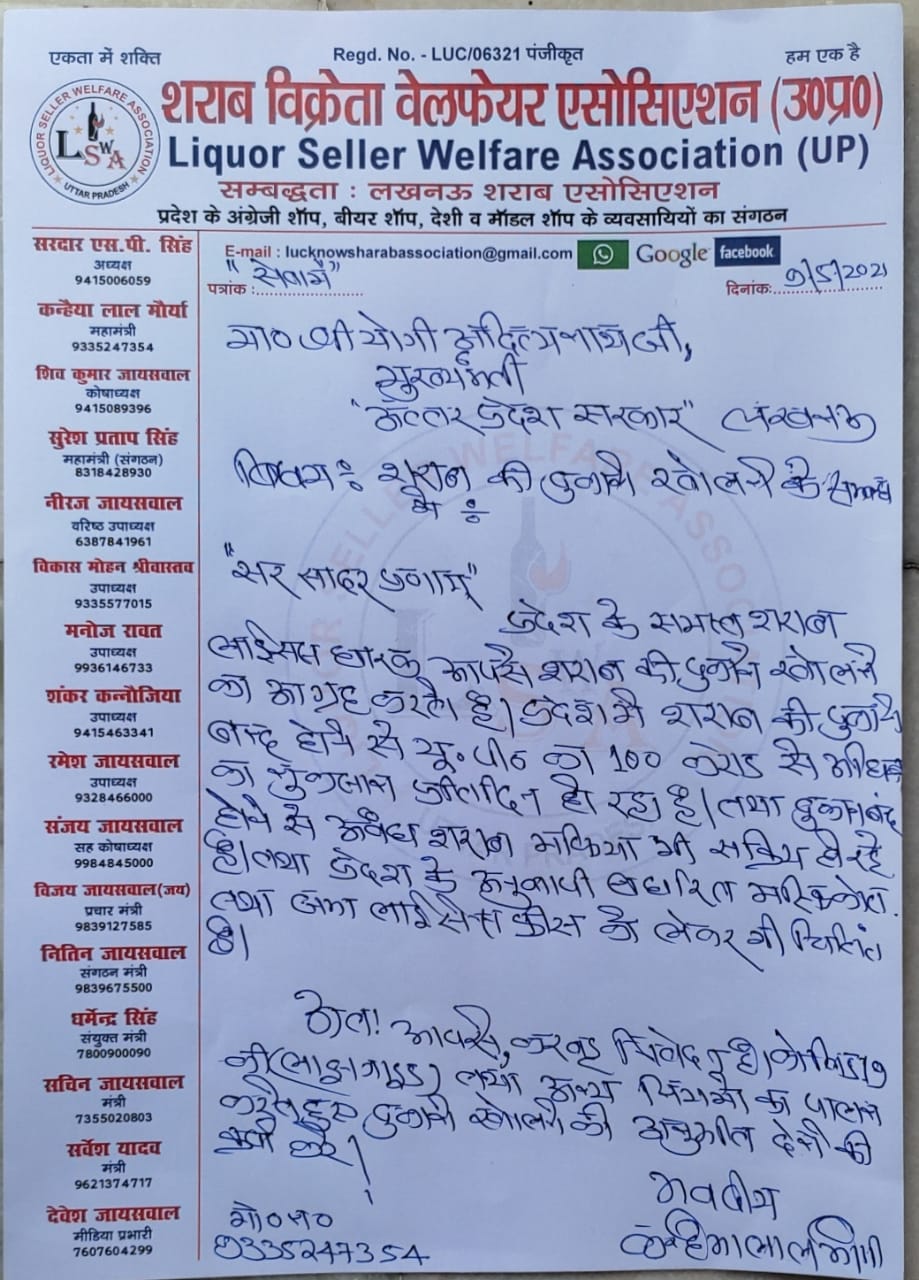 एकता में शक्ति
Regd. No. - LUC/06321 पंजीकृत
हम एक है
LIQUOR SELLER WELFARE ASSOCIATION
LSWA
UTTAR PRADESH
शराब विक्रेता वेलफेयर एसोसिएशन (उ०प्र०)
Liquor Seller Welfare Association (UP)
सम्बद्धता : लखनऊ शराब एसोसिएशन
प्रदेश के अंग्रेजी शॉप, बीयर शॉप, देशी व मॉडल शॉप के व्यवसायियों का संगठन
E-mail : lucknowsharabassociation@gmail.com Google facebook
सरदार एस.पी. सिंह
अध्यक्ष
9415006059
कन्हैया लाल मौर्या
महामंत्री
9335247354
शिव कुमार जायसवाल
कोषाध्यक्ष
9415089396
सुरेश प्रताप सिंह
महामंत्री (संगठन)
8318428930
नीरज जायसवाल
वरिष्ठ उपाध्यक्ष
6387841961
विकास मोहन श्रीवास्तव
उपाध्यक्ष
9335577015
मनोज रावत
उपाध्यक्ष
9936146733
शंकर कन्नौजिया
उपाध्यक्ष
9415463341
रमेश जायसवाल
उपाध्यक्ष
9328466000
संजय जायसवाल
सह कोषाध्यक्ष
9984845000
विजय जायसवाल(जय)
प्रचार मंत्री
9839127585
नितिन जायसवाल
संगठन मंत्री
9839675500
धर्मेन्द्र सिंह
संयुक्त मंत्री
7800900090
सचिन जायसवाल
मंत्री
7355020803
सर्वेश यादव
मंत्री
9621374717
देवेश जायसवाल
मीडिया प्रभारी
7607604299
"सेवामें"
पत्रांक :
दिनांक: 9/5/2021
मा० श्री योगी आदित्यनाथ जी,
मुख्यमंत्री
"उत्तर प्रदेश सरकार" लखनऊ
विषय : शराब की दुकाने खोलने के सम्बन्ध
में :
"सर सादर प्रणाम"
प्रदेश के समस्त शराब
लाइसेंस धारक आपसे शराब की दुकाने खोलने
का आग्रह करते है। प्रदेश में शराब की दुकाने
बन्द होने से यू०पी० का 100 करोड़ से अधिक
का नुकसान प्रतिदिन हो रहा है। तथा दुकान बंद
होने से अवैध शराब माफिया भी सक्रिय हो रहे
है। तथा प्रदेश के अनुज्ञापी
तथा लाईसेन्स फीस को लेकर भी चिंतित
है।
अतः आपसे करबद्ध निवेदन है। कोविड 19
की (गाइड) तथा अन्य नियमों का पालन
करते हुए दुकाने खोलने की अनुमति देने की
करे।
भवदीय
मो० न०
9335247354
कन्हैयालाल मौर्या